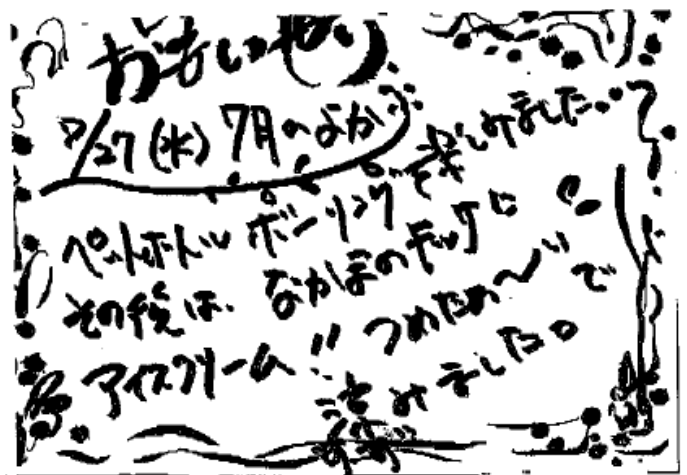 おもいやり
7/27(水) 7月のよか
ペットボトルボーリングで楽しみました。
その後は、なかまのデッキに
アイスクリーム!! つめため〜いで
すみました。